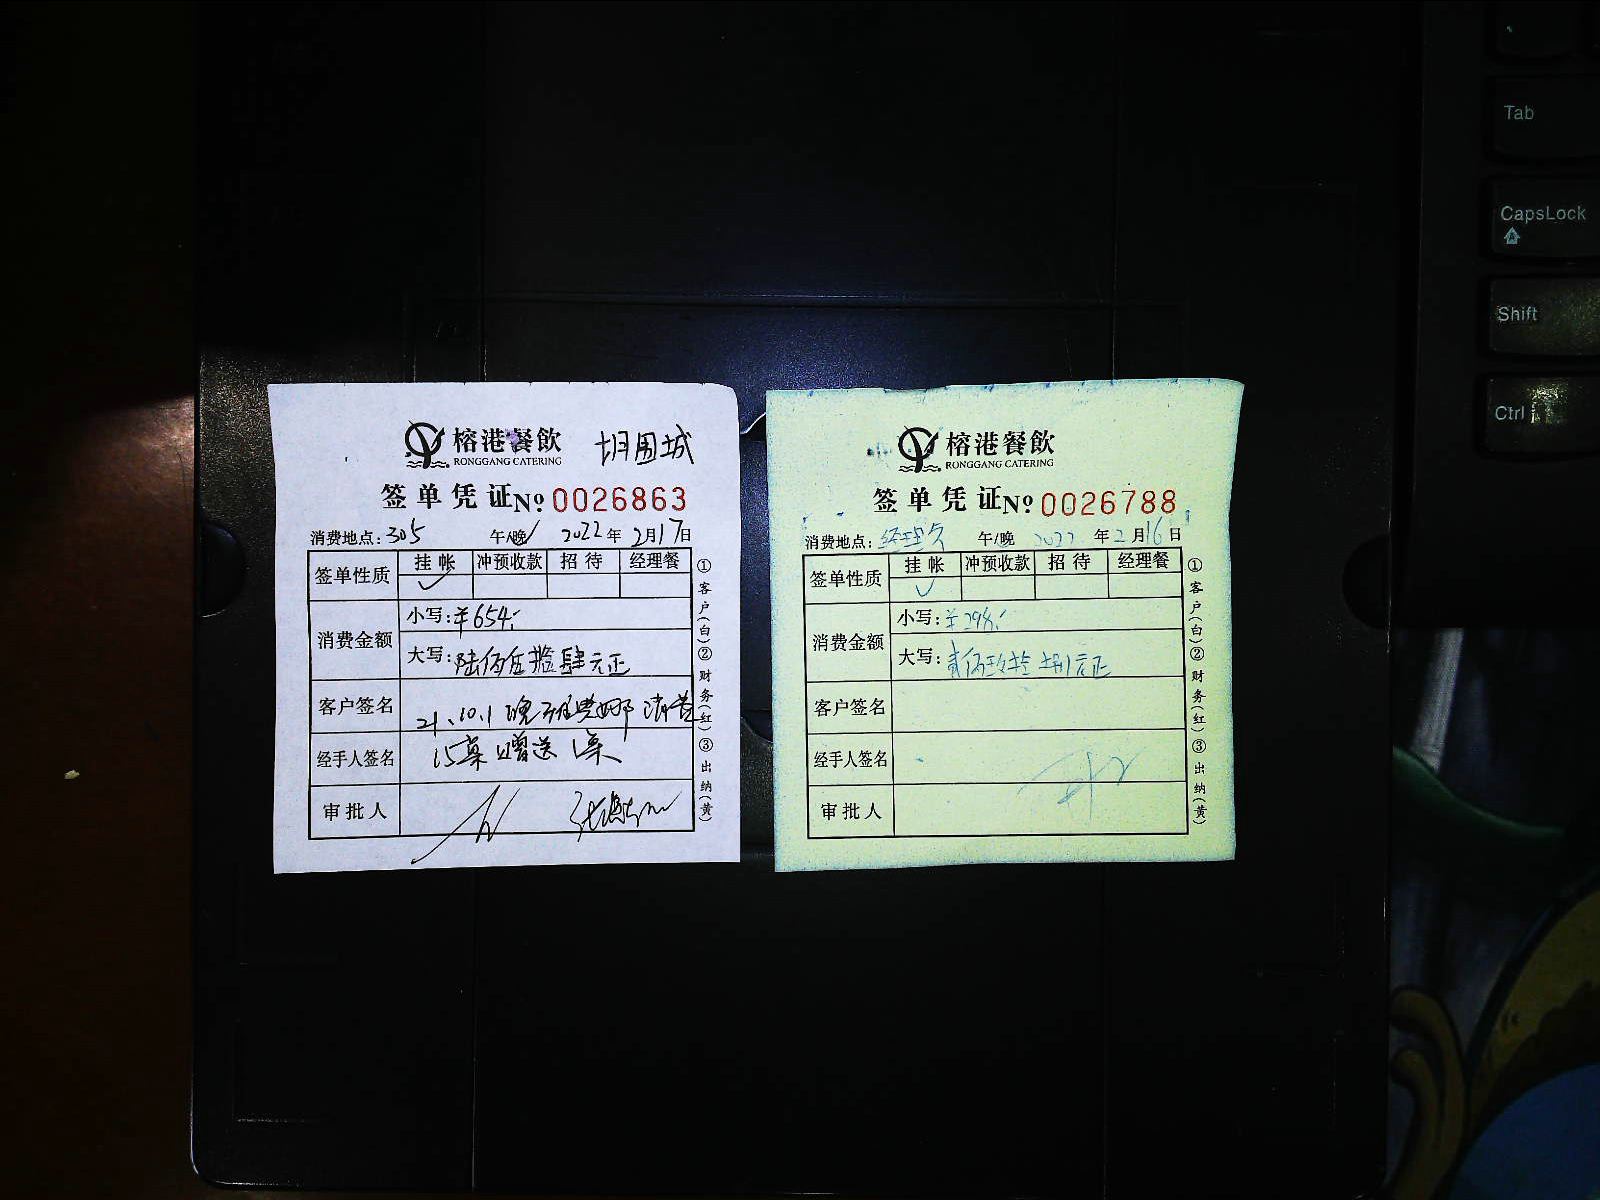 榕港餐飲
RONGGANG CATERING
胡国城
签单凭证 No 0026863
消费地点:305 午/晚 2022年2月17日
签单性质 挂帐 冲预收款 招待 经理餐
✓
消费金额
小写:¥654.-
大写:陆佰伍拾肆元正
客户签名 21.10.1晚
经手人签名 15桌赠送1桌
审批人
①客户(白)②财务(红)③出纳(黄)
榕港餐飲
RONGGANG CATERING
签单凭证 No 0026788
消费地点:经理 午/晚 2022年2月16日
签单性质 挂帐 冲预收款 招待 经理餐
✓
消费金额
小写:¥298.-
大写:贰佰玖拾捌元正
客户签名
经手人签名
审批人
①客户(白)②财务(红)③出纳(黄)
Tab
CapsLock
Shift
Ctrl